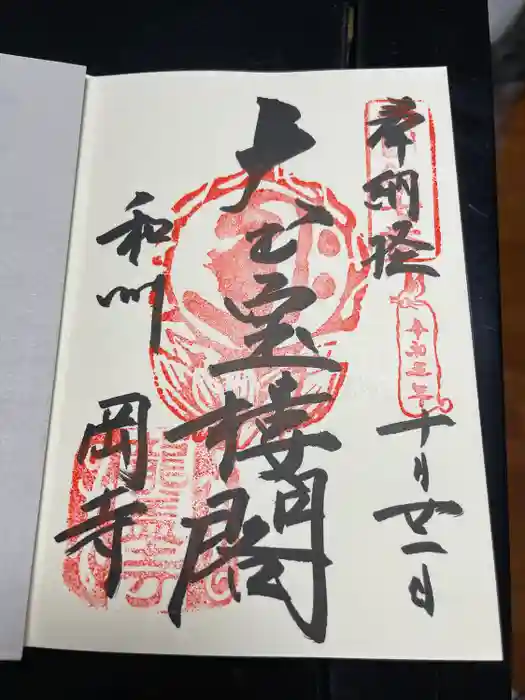 奉納経
令和三年
十月廿一日
大悲宝楼閣
和州
岡寺